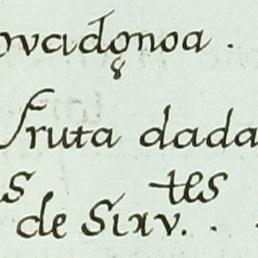 ovadǫnoa .
fruta dada
s tes
de Sirv. .